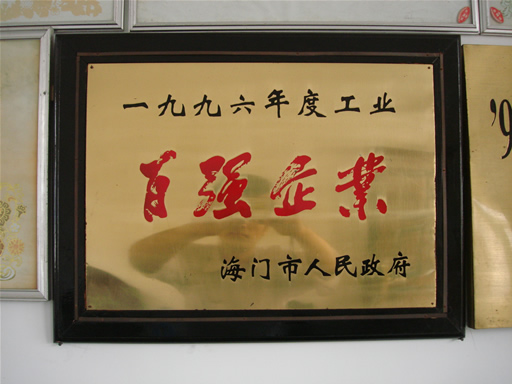 一九九六年度工业
百强企業
海门市人民政府
'9